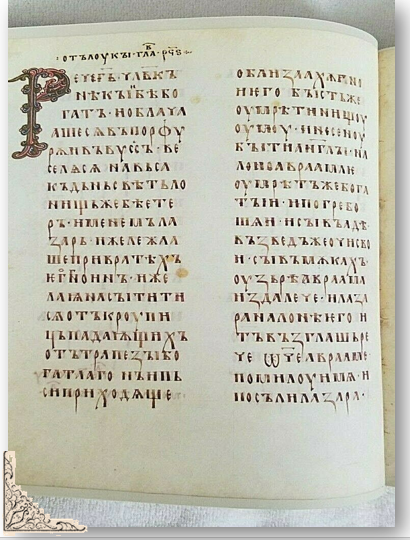 ·отълоукы·гла·рч҃ѕ·
Рече г҃ь·чл҃вкъ
нѣкъıи бѣ бо
гатъ·и облача
аше сѧ въ порфу
рѫ и въ вуссъ·ве
селѧ сѧ на вьсѧ
къ дьнь свѣтьло
нищь же бѣ ете
ръ·именемь ла
зарь·иже лежа
ше при вратѣхъ
его гноинъ·иже
лаıа насытити
сѧ отъ кроупи
ць падаѭщихъ
отъ трапезы бо
гатаго нъ и пь
си приходѧще
облизаахѫ гнои
и его бъıстъ же
оумрѣти нищоу
оумоу·и несеноу
бъıти англъı на
лоно авраамле
оумрѣтъ же бога
тъıи·и погребо
шѧ и·и съı въ адѣ·
възведъ же очи сво
и·съı въ мѫкахъ·
оузьрѣ авраама
издалече·и лаза
ра на лонѣ его·и
тъ възглашь ре
че ѿче аврааме
помилоуи мѧ·и
посъли лазара·